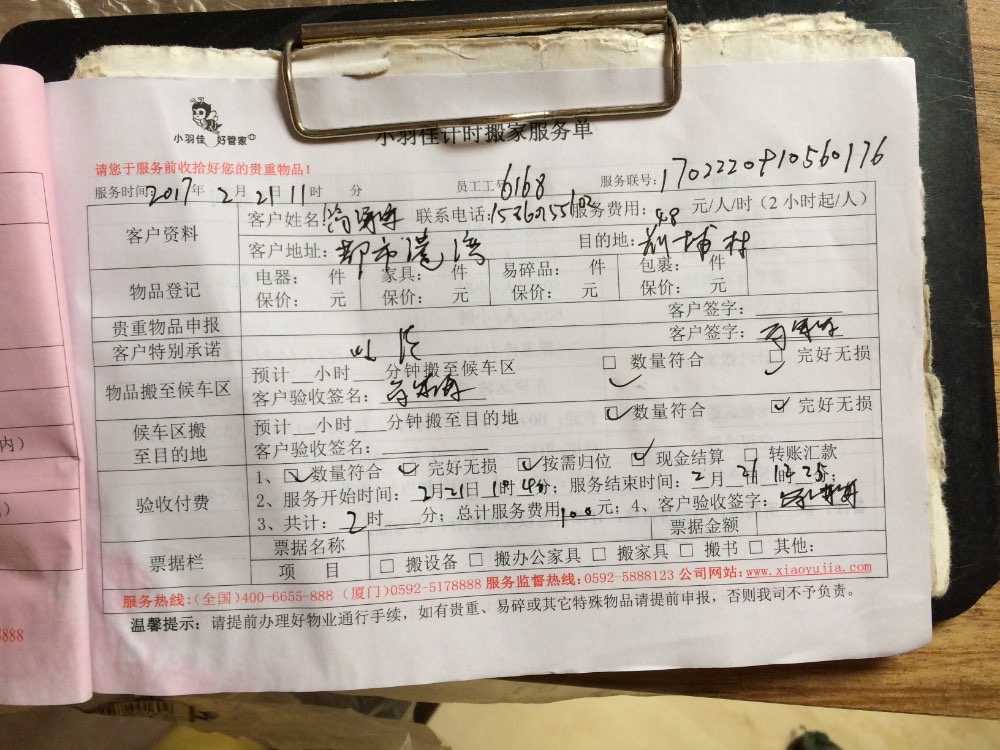 小羽佳 好管家
小羽佳计时搬家服务单
请您于服务前收拾好您的贵重物品！
服务时间 2017年 2月21日11时 分 员工工号 6168 服务联号: 1702220910560176
客户资料 客户姓名: 联系电话: 服务费用: 48 元/人/时(2小时起/人)
客户地址: 都市港湾 目的地: 埔村
物品登记 电器: 件 家具: 件 易碎品: 件 包裹: 件
保价: 元 保价: 元 保价: 元 保价: 元
贵重物品申报 客户签字:
客户特别承诺 客户签字:
物品搬至候车区 预计__小时___分钟搬至候车区 □ 数量符合 □ 完好无损
客户验收签名:
候车区搬至目的地 预计__小时___分钟搬至目的地 ☑数量符合 ☑ 完好无损
客户验收签名:
验收付费 1、☑数量符合 ☑ 完好无损 ☑按需归位 ☑ 现金结算 □ 转账汇款
2、服务开始时间: 2月21日 时 分; 服务结束时间: 2月21日
3、共计: 2时___分; 总计服务费用 元; 4、客户验收签字:
票据栏 票据名称 票据金额
项 目 □ 搬设备 □ 搬办公家具 □ 搬家具 □ 搬书 □ 其他:
服务热线:(全国)400-6655-888 (厦门)0592-5178888 服务监督热线:0592-5888123 公司网站:www.xiaoyujia.com
温馨提示: 请提前办理好物业通行手续，如有贵重、易碎或其它特殊物品请提前申报，否则我司不予负责。
内)
)
8888